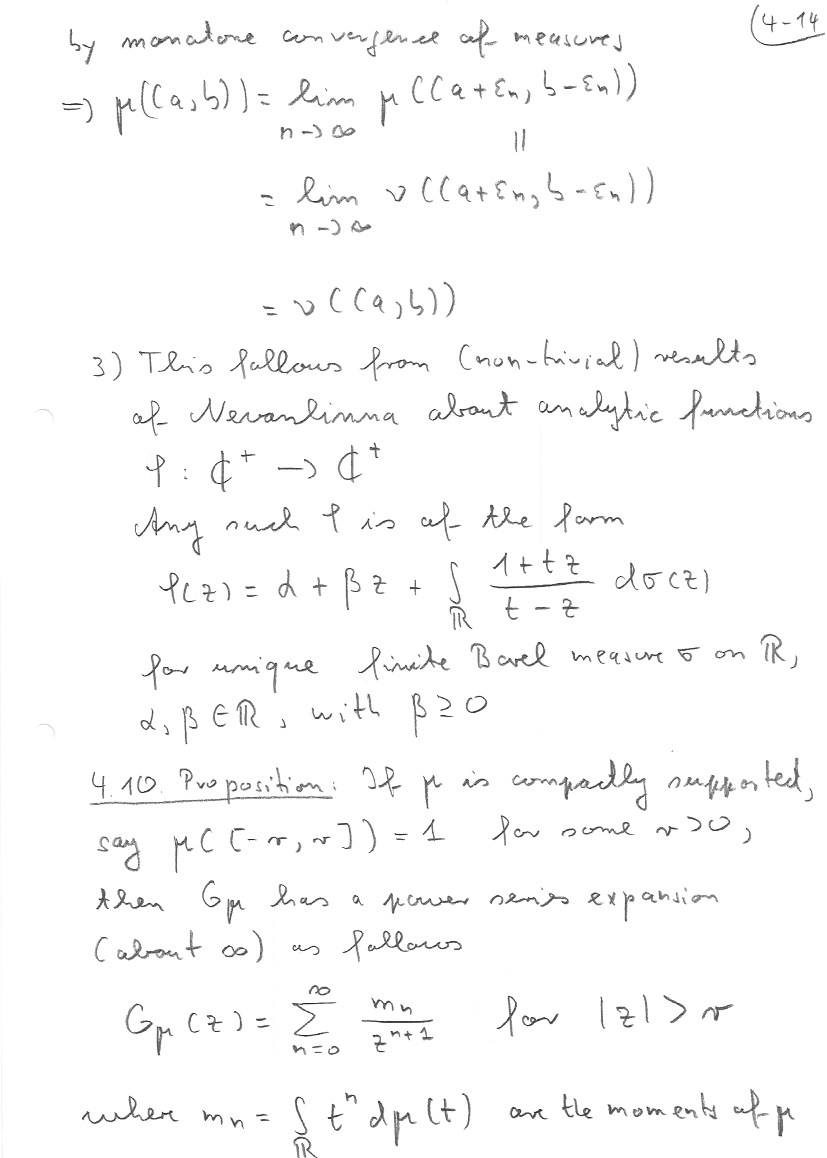 (4-14
by monotone convergence of measures
=> μ((a,b)) = lim μ((a+εn, b-εn))
n→∞ ||
= lim ν((a+εn, b-εn))
n→∞
= ν((a,b))
3) This follows from (non-trivial) results
of Nevanlinna about analytic functions
φ: ℂ⁺ → ℂ⁺
Any such φ is of the form
φ(z) = α + βz + ∫_ℝ (1+tz)/(t-z) dσ(z)
for unique finite Borel measure σ on ℝ,
α, β ∈ ℝ, with β ≥ 0
4.10. Proposition: If μ is compactly supported,
say μ([-r, r]) = 1 for some r>0,
then Gμ has a power series expansion
(about ∞) as follows
Gμ(z) = ∑_{n=0}^∞ mn/z^{n+1} for |z| > r
where mn = ∫_ℝ tⁿ dμ(t) are the moments of μ